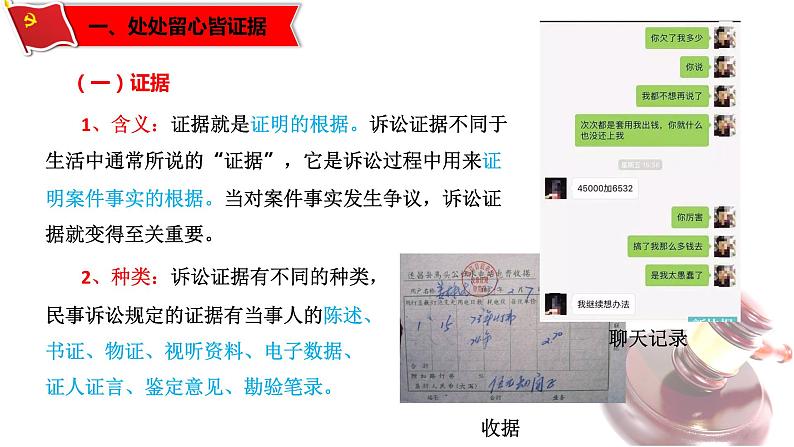 一、处处留心皆证据
（一）证据
1、含义：证据就是证明的根据。诉讼证据不同于
生活中通常所说的“证据”，它是诉讼过程中用来证
明案件事实的根据。当对案件事实发生争议，诉讼证
据就变得至关重要。
2、种类：诉讼证据有不同的种类，
民事诉讼规定的证据有当事人的陈述、
书证、物证、视听资料、电子数据、
证人证言、鉴定意见、勘验笔录。
你欠了我多少
你说
我都不想再说了
次次都是套用我出钱，你就什么
也没还上我
星期五 15:56
45000加6532
你厉害
搞了我那么多钱去
是我太愚蠢了
我继续想办法
聊天记录
电费收据
1
15
2.70
合计
收据